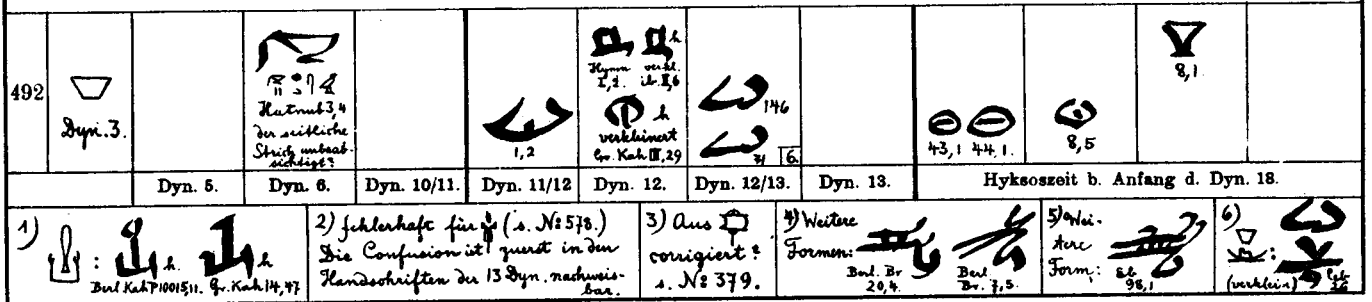 492
Dyn. 3.
Hatnub 3, 4
der seitliche
Strich unbeab-
sichtigt?
1, 2
Hymn
I, 2.
verkl.
ib. II, 6
h
h
verkleinert
Gr. Kah III, 29
146
6.
43, 1
44, 1.
8, 5
8, 1
Dyn. 5.
Dyn. 6.
Dyn. 10/11.
Dyn. 11/12
Dyn. 12.
Dyn. 12/13.
Dyn. 13.
Hyksoszeit b. Anfang d. Dyn. 18.
1)
: h. h
Berl. Kah P10015, 11. Gr. Kah 14, 47
2) fehlerhaft für (s. No 578.)
Die Confusion ist zuerst in den
Handschriften der 13 Dyn. nachweis-
bar.
3) Aus
corrigiert?
s. No 379.
4) Weitere
Formen:
Berl. Br
20, 4.
Berl.
Br. 7, 5.
5) Wei-
tere
Form:
Eb
98, 1
6)
:
(verklein.)